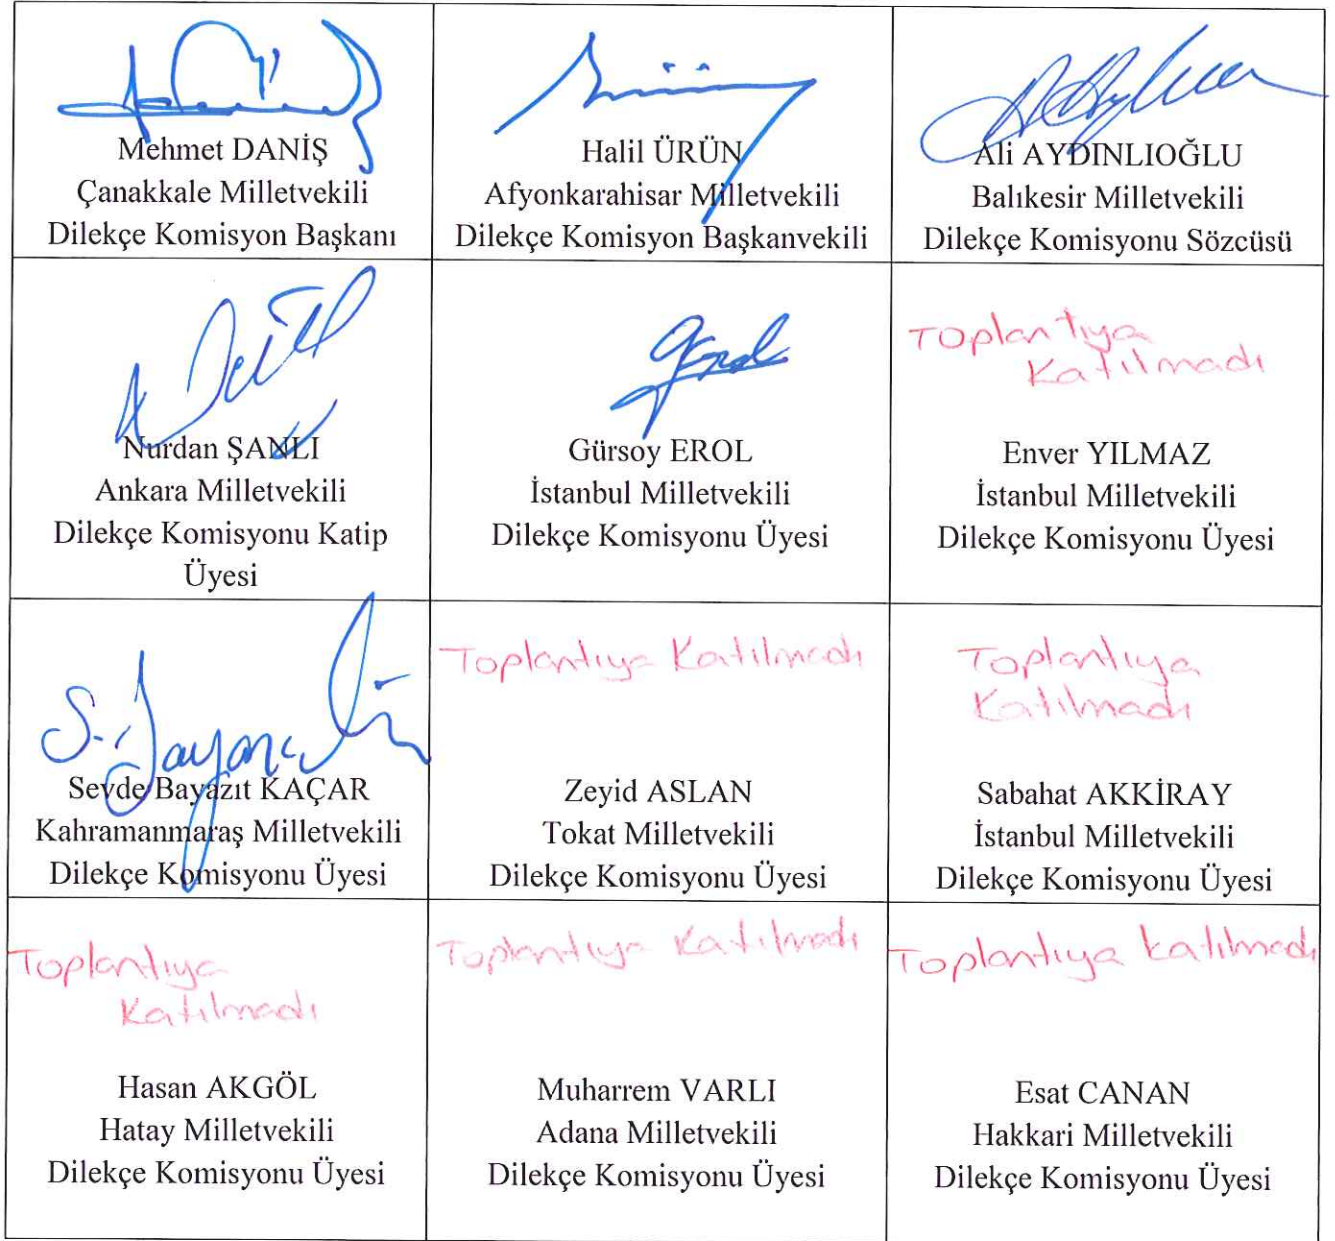 Mehmet DANİŞ
Çanakkale Milletvekili
Dilekçe Komisyon Başkanı
Halil ÜRÜN
Afyonkarahisar Milletvekili
Dilekçe Komisyon Başkanvekili
Ali AYDINLIOĞLU
Balıkesir Milletvekili
Dilekçe Komisyonu Sözcüsü
Nurdan ŞANLI
Ankara Milletvekili
Dilekçe Komisyonu Katip
Üyesi
Gürsoy EROL
İstanbul Milletvekili
Dilekçe Komisyonu Üyesi
Toplantıya
Katılmadı
Enver YILMAZ
İstanbul Milletvekili
Dilekçe Komisyonu Üyesi
Sevde Bayazıt KAÇAR
Kahramanmaraş Milletvekili
Dilekçe Komisyonu Üyesi
Toplantıya Katılmadı
Zeyid ASLAN
Tokat Milletvekili
Dilekçe Komisyonu Üyesi
Toplantıya
Katılmadı
Sabahat AKKİRAY
İstanbul Milletvekili
Dilekçe Komisyonu Üyesi
Toplantıya
Katılmadı
Hasan AKGÖL
Hatay Milletvekili
Dilekçe Komisyonu Üyesi
Toplantıya Katılmadı
Muharrem VARLI
Adana Milletvekili
Dilekçe Komisyonu Üyesi
Toplantıya Katılmadı
Esat CANAN
Hakkari Milletvekili
Dilekçe Komisyonu Üyesi